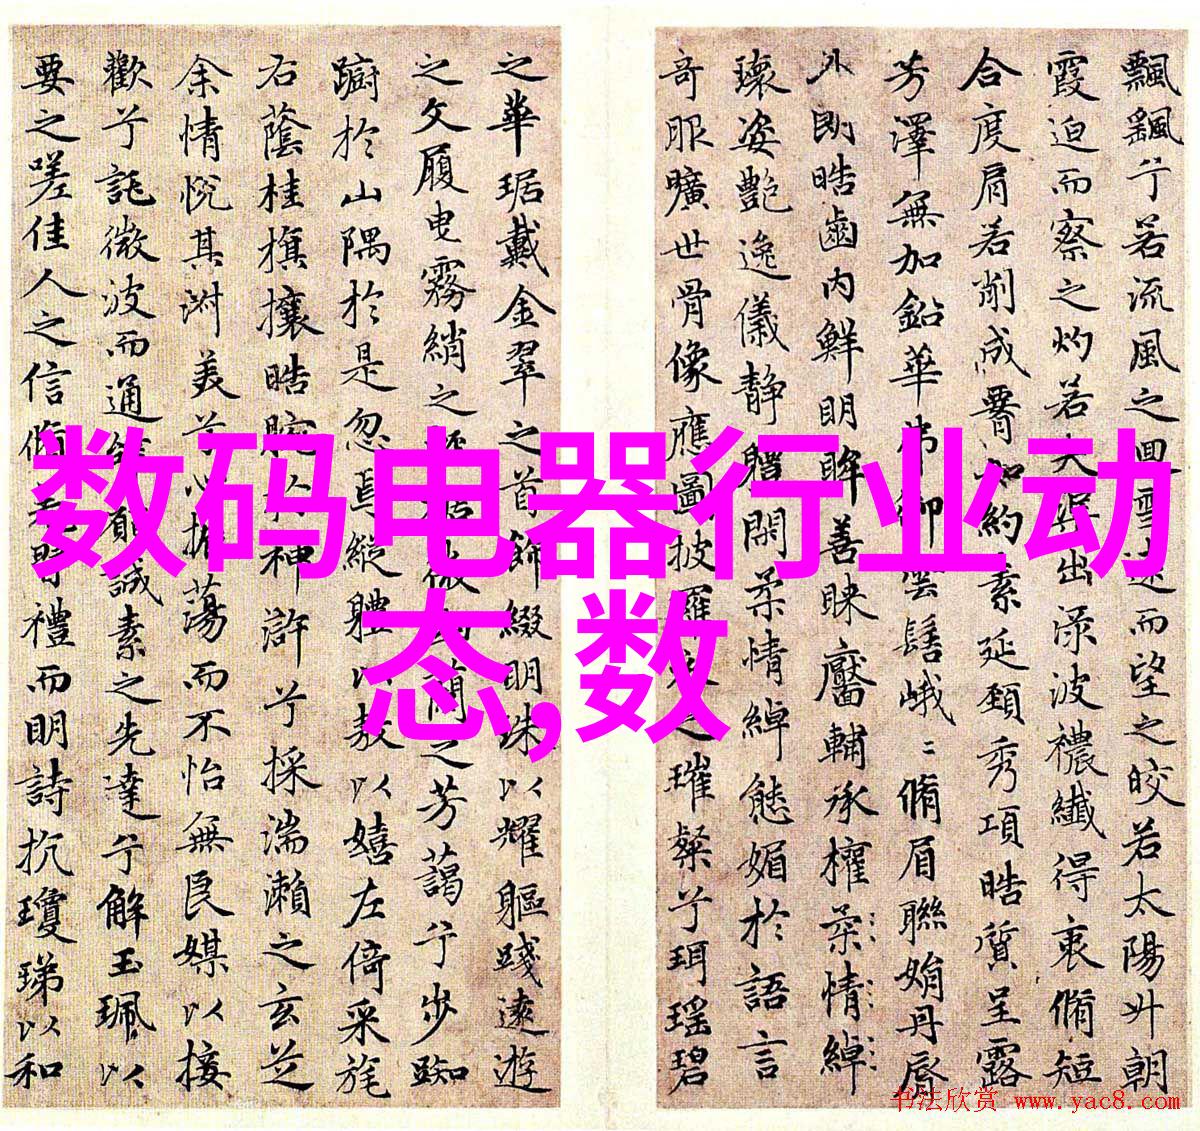 数码电器行业动
态,数
飄飖兮若流風之迴雪遠而望之皎若太陽升朝
霞迫而察之灼若芙蕖出淥波禯纖得衷脩短
合度肩若削成腰如約素延頸秀項皓質呈露
芳澤無加鉛華弗御雲髻峨〻脩眉聯娟丹脣
外朗皓齒內鮮明眸善睞靨輔承權柔情綽
瓌姿艷逸儀靜體閑柔情綽態媚於語言
奇服曠世骨像應圖披羅衣之璀粲兮珥瑤碧
之華琚戴金翠之首飾綴明珠以耀軀踐遠遊
之文履曳霧綃之輕裾微幽蘭之芳藹兮步踟
躕於山隅於是忽焉縱體以敖以嬉左倚采旄
右蔭桂旗攘皓腕於神滸兮採湍瀨之玄芝
余情悅其淑美兮心振蕩而不怡無良媒以接
歡兮託微波而通辭願誠素之先達兮解玉珮以
要之嗟佳人之信脩羌習禮而明詩抗瓊珶以和
书法欣赏 www.yac8.com